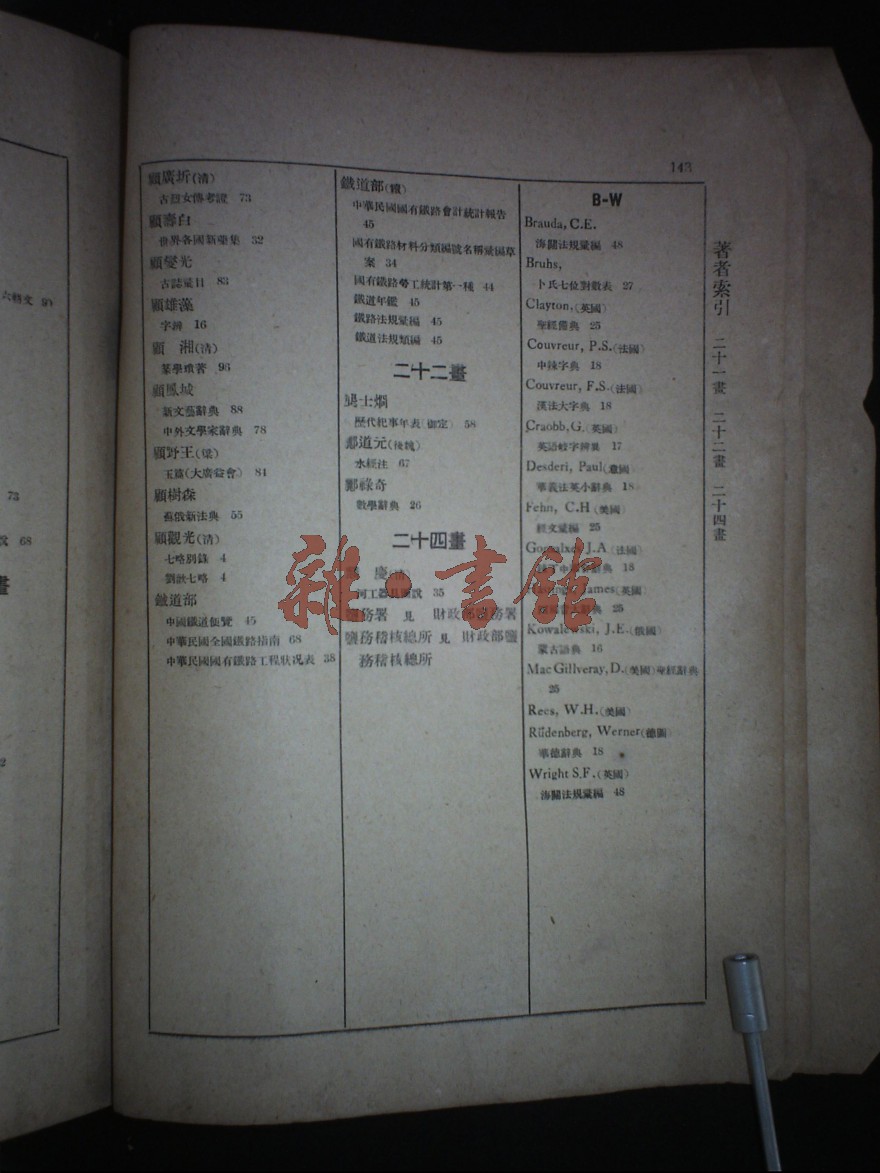 143
顧廣圻(清)
古列女傳考證 73
顧壽白
世界各國新藥集 32
顧燮光
古誌彙目 83
顧雄藻
字辨 16
顧 湘(清)
篆學瑣著 96
顧鳳城
新文藝辭典 88
中外文學家辭典 78
顧野王(梁)
玉篇(大廣益會) 84
顧樹森
蘇俄新法典 55
顧觀光(清)
七略別錄 4
劉歆七略 4
鐵道部
中國鐵道便覽 45
中華民國全國鐵路指南 68
中華民國國有鐵路工程狀況表 38
鐵道部(續)
中華民國國有鐵路會計統計報告
45
國有鐵路材料分類編號名稱彙編草
案 34
國有鐵路勞工統計第一種 44
鐵道年鑑 45
鐵路法規彙編 45
鐵道法規類編 45
二十二畫
龔士烱
歷代紀事年表(御定) 58
酈道元(後魏)
水經注 67
酈祿奇
數學辭典 26
二十四畫
慶
河工器具圖說 35
鹽務署 見 財政部鹽務署
鹽務稽核總所 見 財政部鹽
務稽核總所
B-W
Brauda, C.E.
海關法規彙編 48
Bruhs,
卜氏七位對數表 27
Clayton,(英國)
聖經備典 25
Couvreur, P.S.(法國)
中辣字典 18
Couvreur, F.S.(法國)
漢法大字典 18
Craobb,G.(英國)
英語歧字辨異 17
Desderi, Paul(意國)
華義法英小辭典 18
Fehn, C.H(美國)
經文彙編 25
J.A(法國)
18
James(英國)
25
Kowalewski, J.E.(俄國)
蒙古語典 16
Mac Gillveray, D.(美國)聖經辭典
25
Rees, W.H.(美國)
Rüdenberg, Werner(德國)
華德辭典 18
Wright S.F.(英國)
海關法規彙編 48
著者索引 二十一畫 二十二畫 二十四畫
雜·書館
六藝文
73
68
畫
2